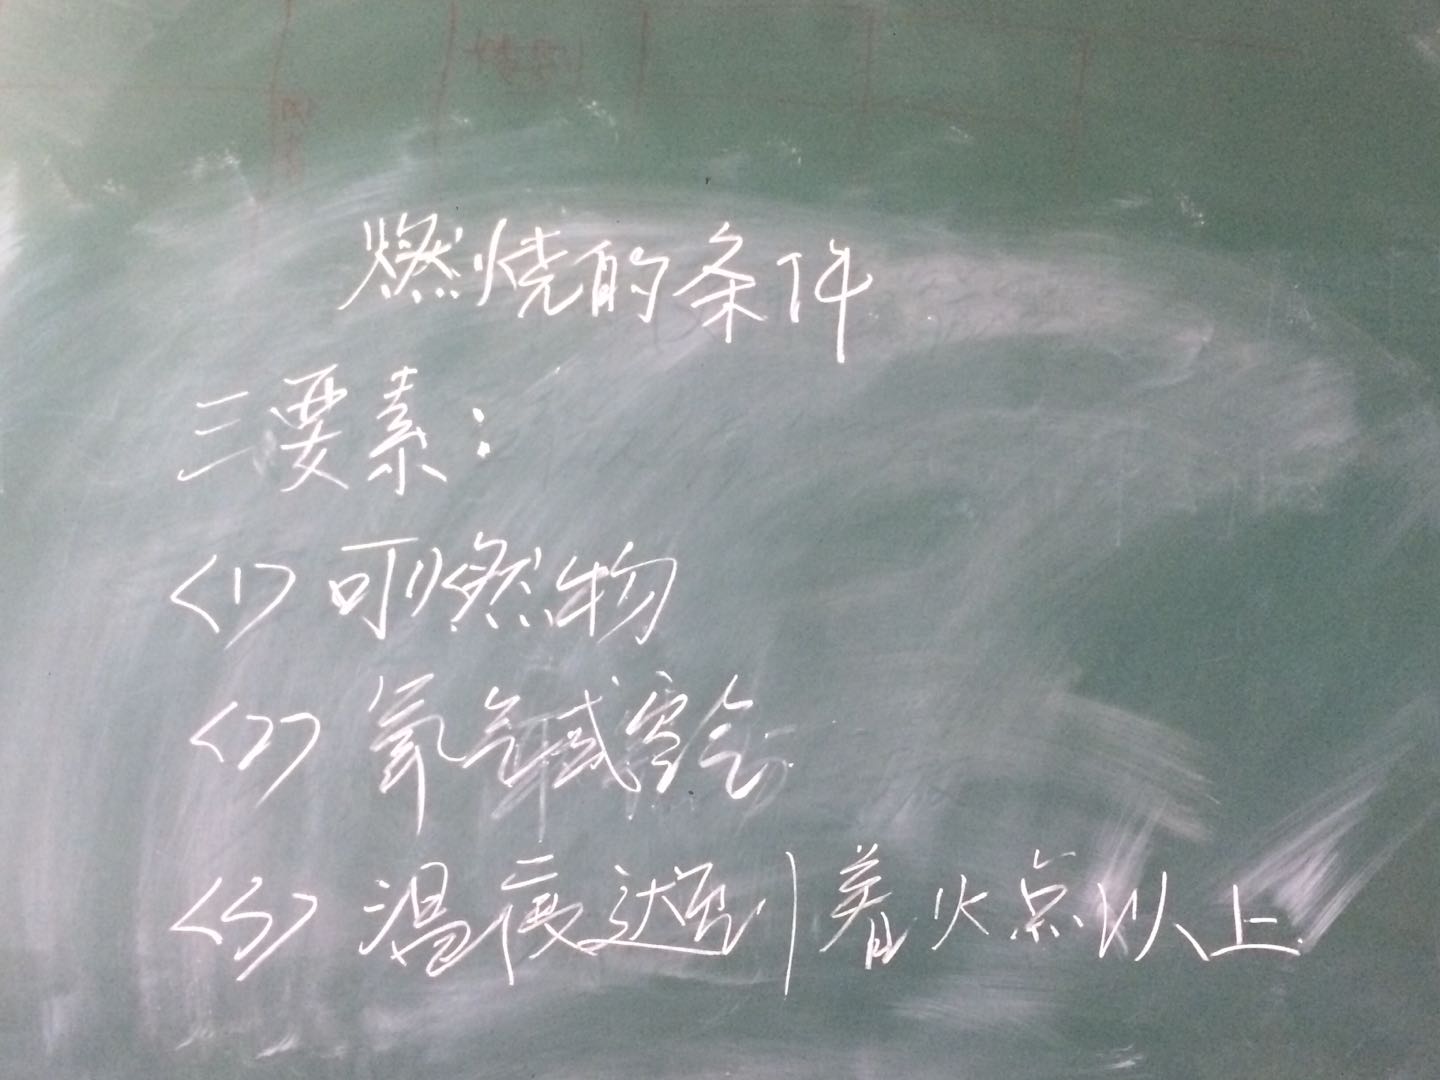 燃烧的条件
三要素:
<1>可燃物
<2>氧气或空气
<3>温度达到着火点以上